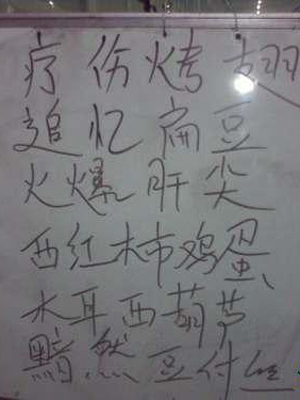 疗伤烤翅
追忆扁豆
火爆肝尖
西红柿鸡蛋
木耳西葫芦
黯然豆付丝